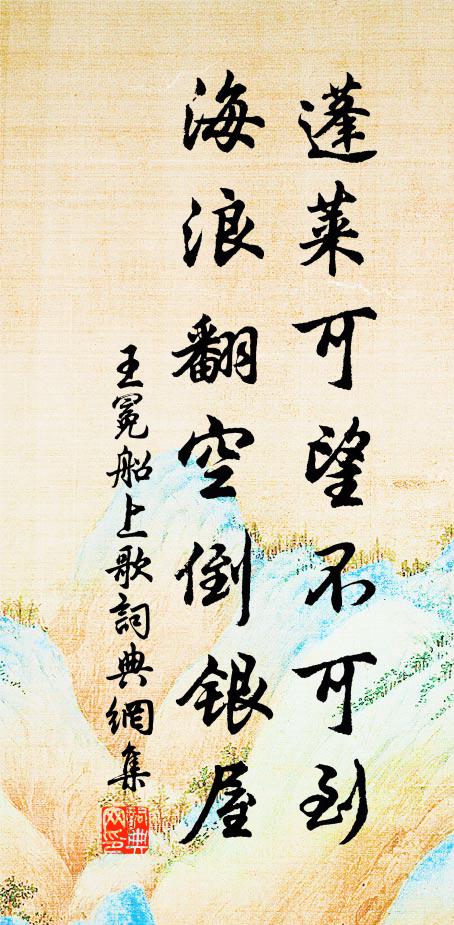 蓬莱可望不可到
海浪翻空倒銀屋
王冕船上歌詞典網集
詞典
网印